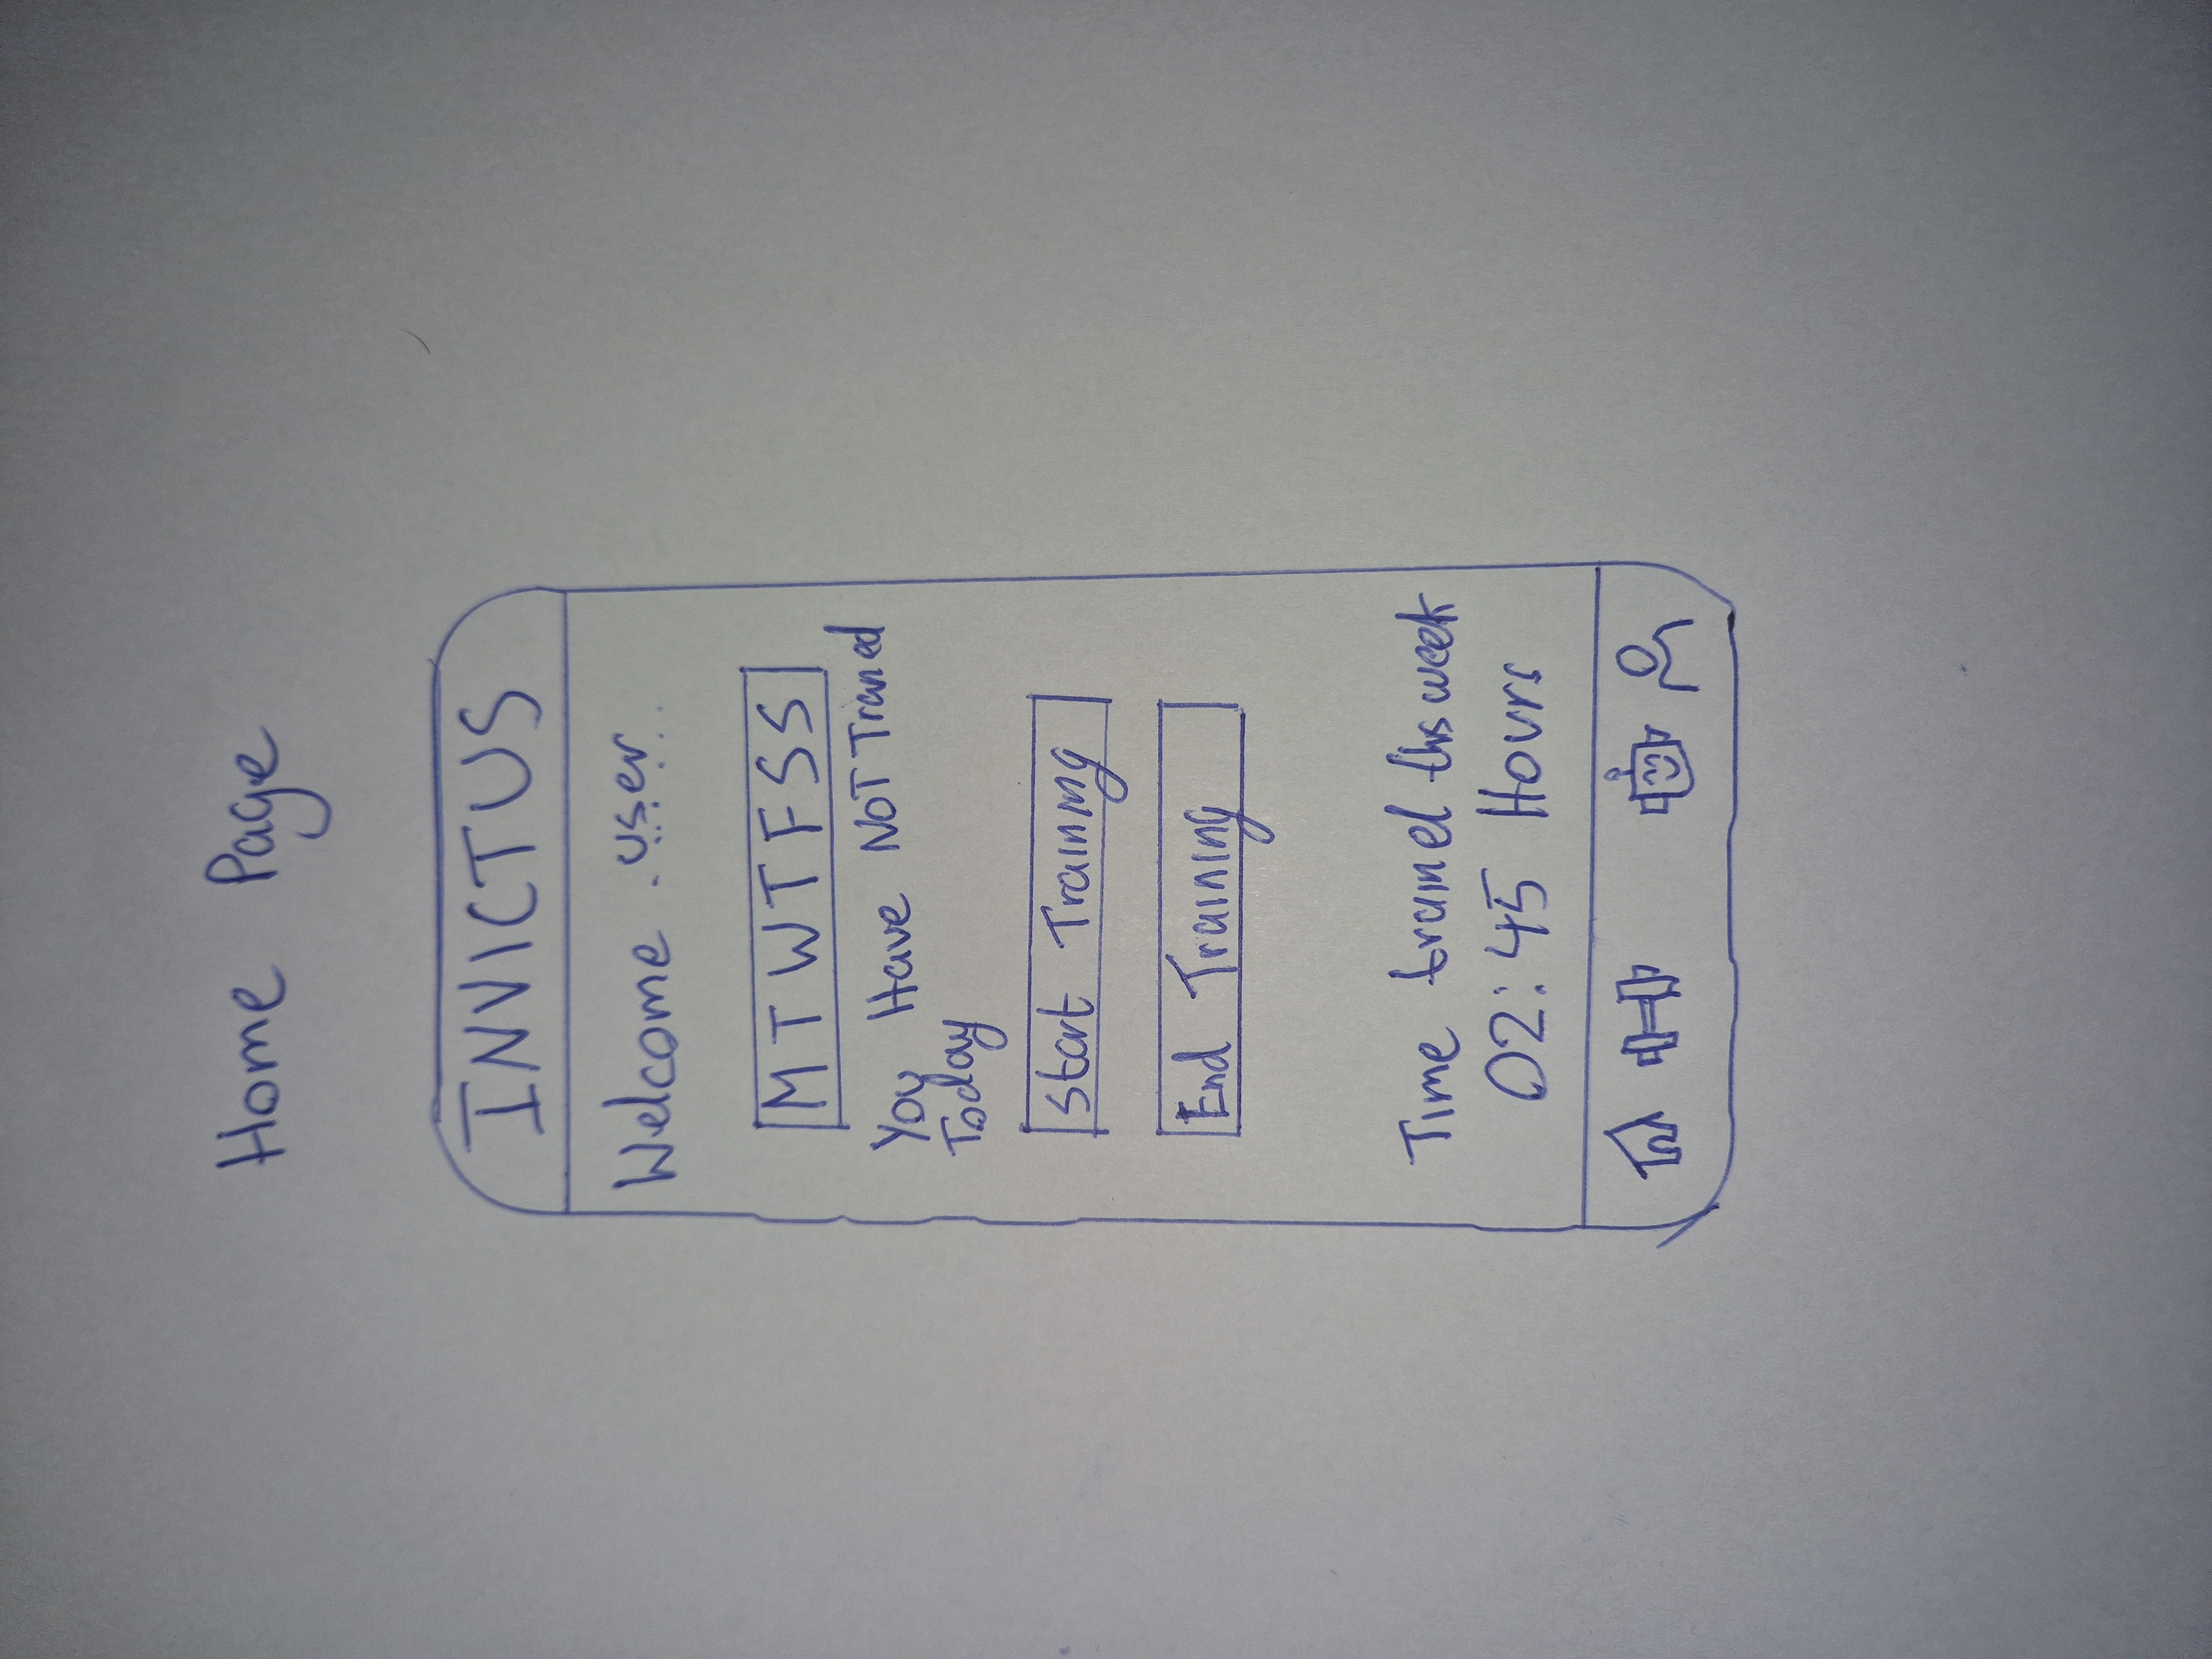 Home Page
INVICTUS
Welcome user
M T W T F S S
You Have NOT Traned
Today
Start Training
End Training
Time trained this week
02:45 Hours